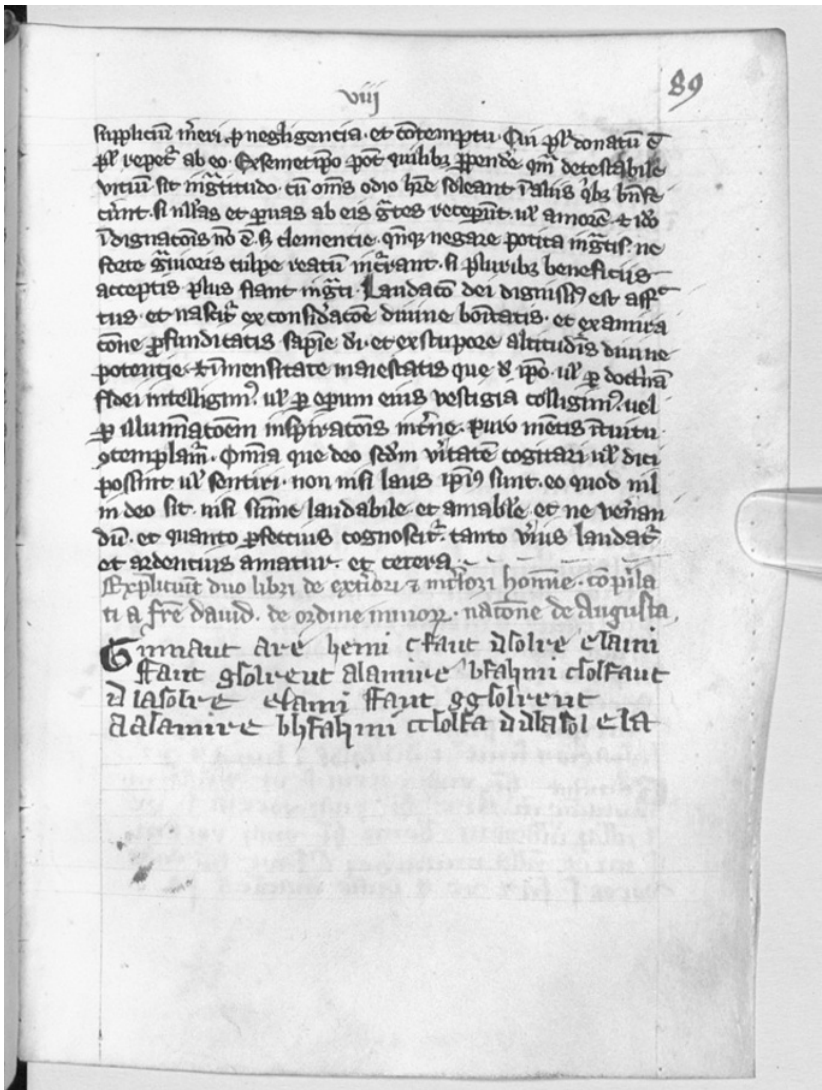 viij
89
suppliciū m̄eri ꝑ negligencia · et ꝯtemptu · Cui pl' donatū ē
pl' repet̄ ab eo · Ex semetip̄o pōt quilibꝫ ꝑpendē qm̄ detestabile
vitiū sit īgᷓtitudo · cū om̄s odio hr̄e soleant ī aliis qͥbꝫ bn̄fe
cūnt · si ull'as et ꝑuas ab eis gᷓtes recepūt · ul' amorē · ⁊ iō
īdignatōis nō ē · sꝫ clementie · negare petita īgᷓtis · ne
forte gᷓuioris culpe reatū incᷓrant · si pluribꝫ beneficiis
acceptis plus fiant īgᷓti · Laudatō dei dignissīꝰ est affc̄
tus · et nascit̄ ex consid̓atōe diuine bōitatis · et ex amira
tōne ꝓfunditatis sapīe di · et ex stupore altitudīs diuine
potencie · ⁊ īmensitate maiestatis que d̓ ip̄o · ul' ꝑ doctⁱnā
fidei intelligimꝰ · ul' ꝑ oꝑum eius vestigia colligimꝰ · uel
ꝑ illumīatōem inspiratōis int̓ne · puro mētis ītuitu
ꝯtemplam̄ · Om̄ia que deo scdm v̓itatē cogitari ul' dici
possint ul' sentiri · non nisi laus ip̄iꝰ sunt · eo quod nil
in deo sit · nisi sūme laudabile · et amabile · et ue n̄an
dū · et quanto ꝑfectius cognoscit̄ · tanto v̓ius laudat̄
et ardentius amatur · et cetera
Explicıūt duo libri de ext̓iori ⁊ int̓iori homīe · cōpila
ti a fr̄e dauid · de ordine minoꝝ · natōne de Augusta
Gͣmmaut are hemi cfaut dsolre elami
ffaut gsolreut alamire bfahmi csolfaut
dlasolre elami ffaut ggsolreut
aalamire bhfahmi ccsolfa ddlasol ela